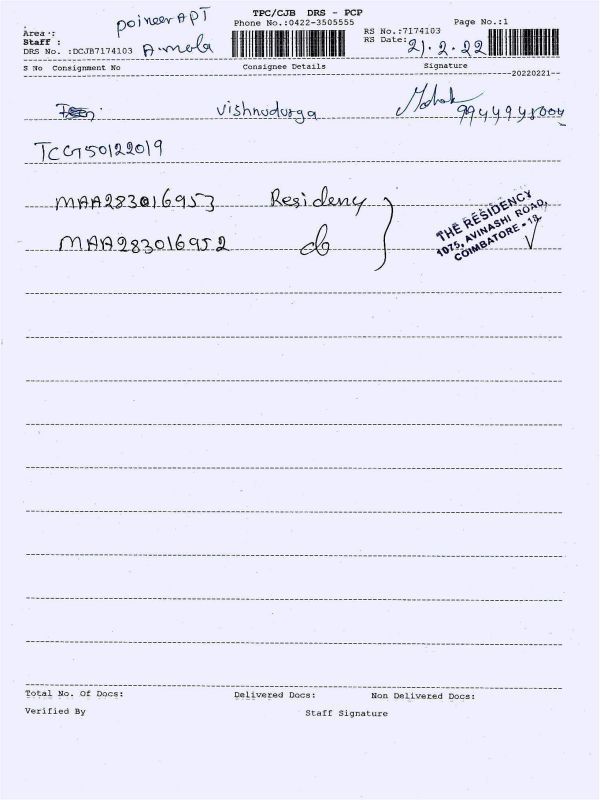 poineer APT
TPC/CJB DRS - PCP
Area :
Phone No.:0422-3505555
Page No.:1
Staff :
RS No.:7174103
DRS No. :DCJB7174103
A-mola
RS Date:
21.2.22
S No Consignment No
Consignee Details
Signature
--20220221--
vishnudurga
TCG150122019
MAA283016953 Residency
MAA283016952 do
THE RESIDENCY
1075, AVINASHI ROAD,
COIMBATORE - 18.
Total No. Of Docs:
Delivered Docs:
Non Delivered Docs:
Verified By
Staff Signature